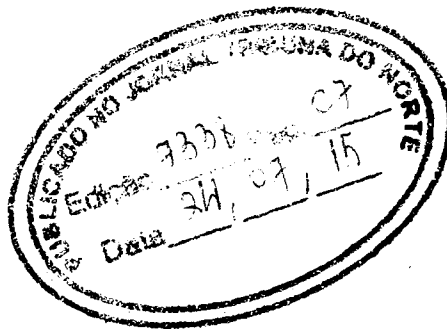 PUBLICADO NO JORNAL TRIBUNA DO NORTE
Edição 7338 07
Data 24, 07, 15